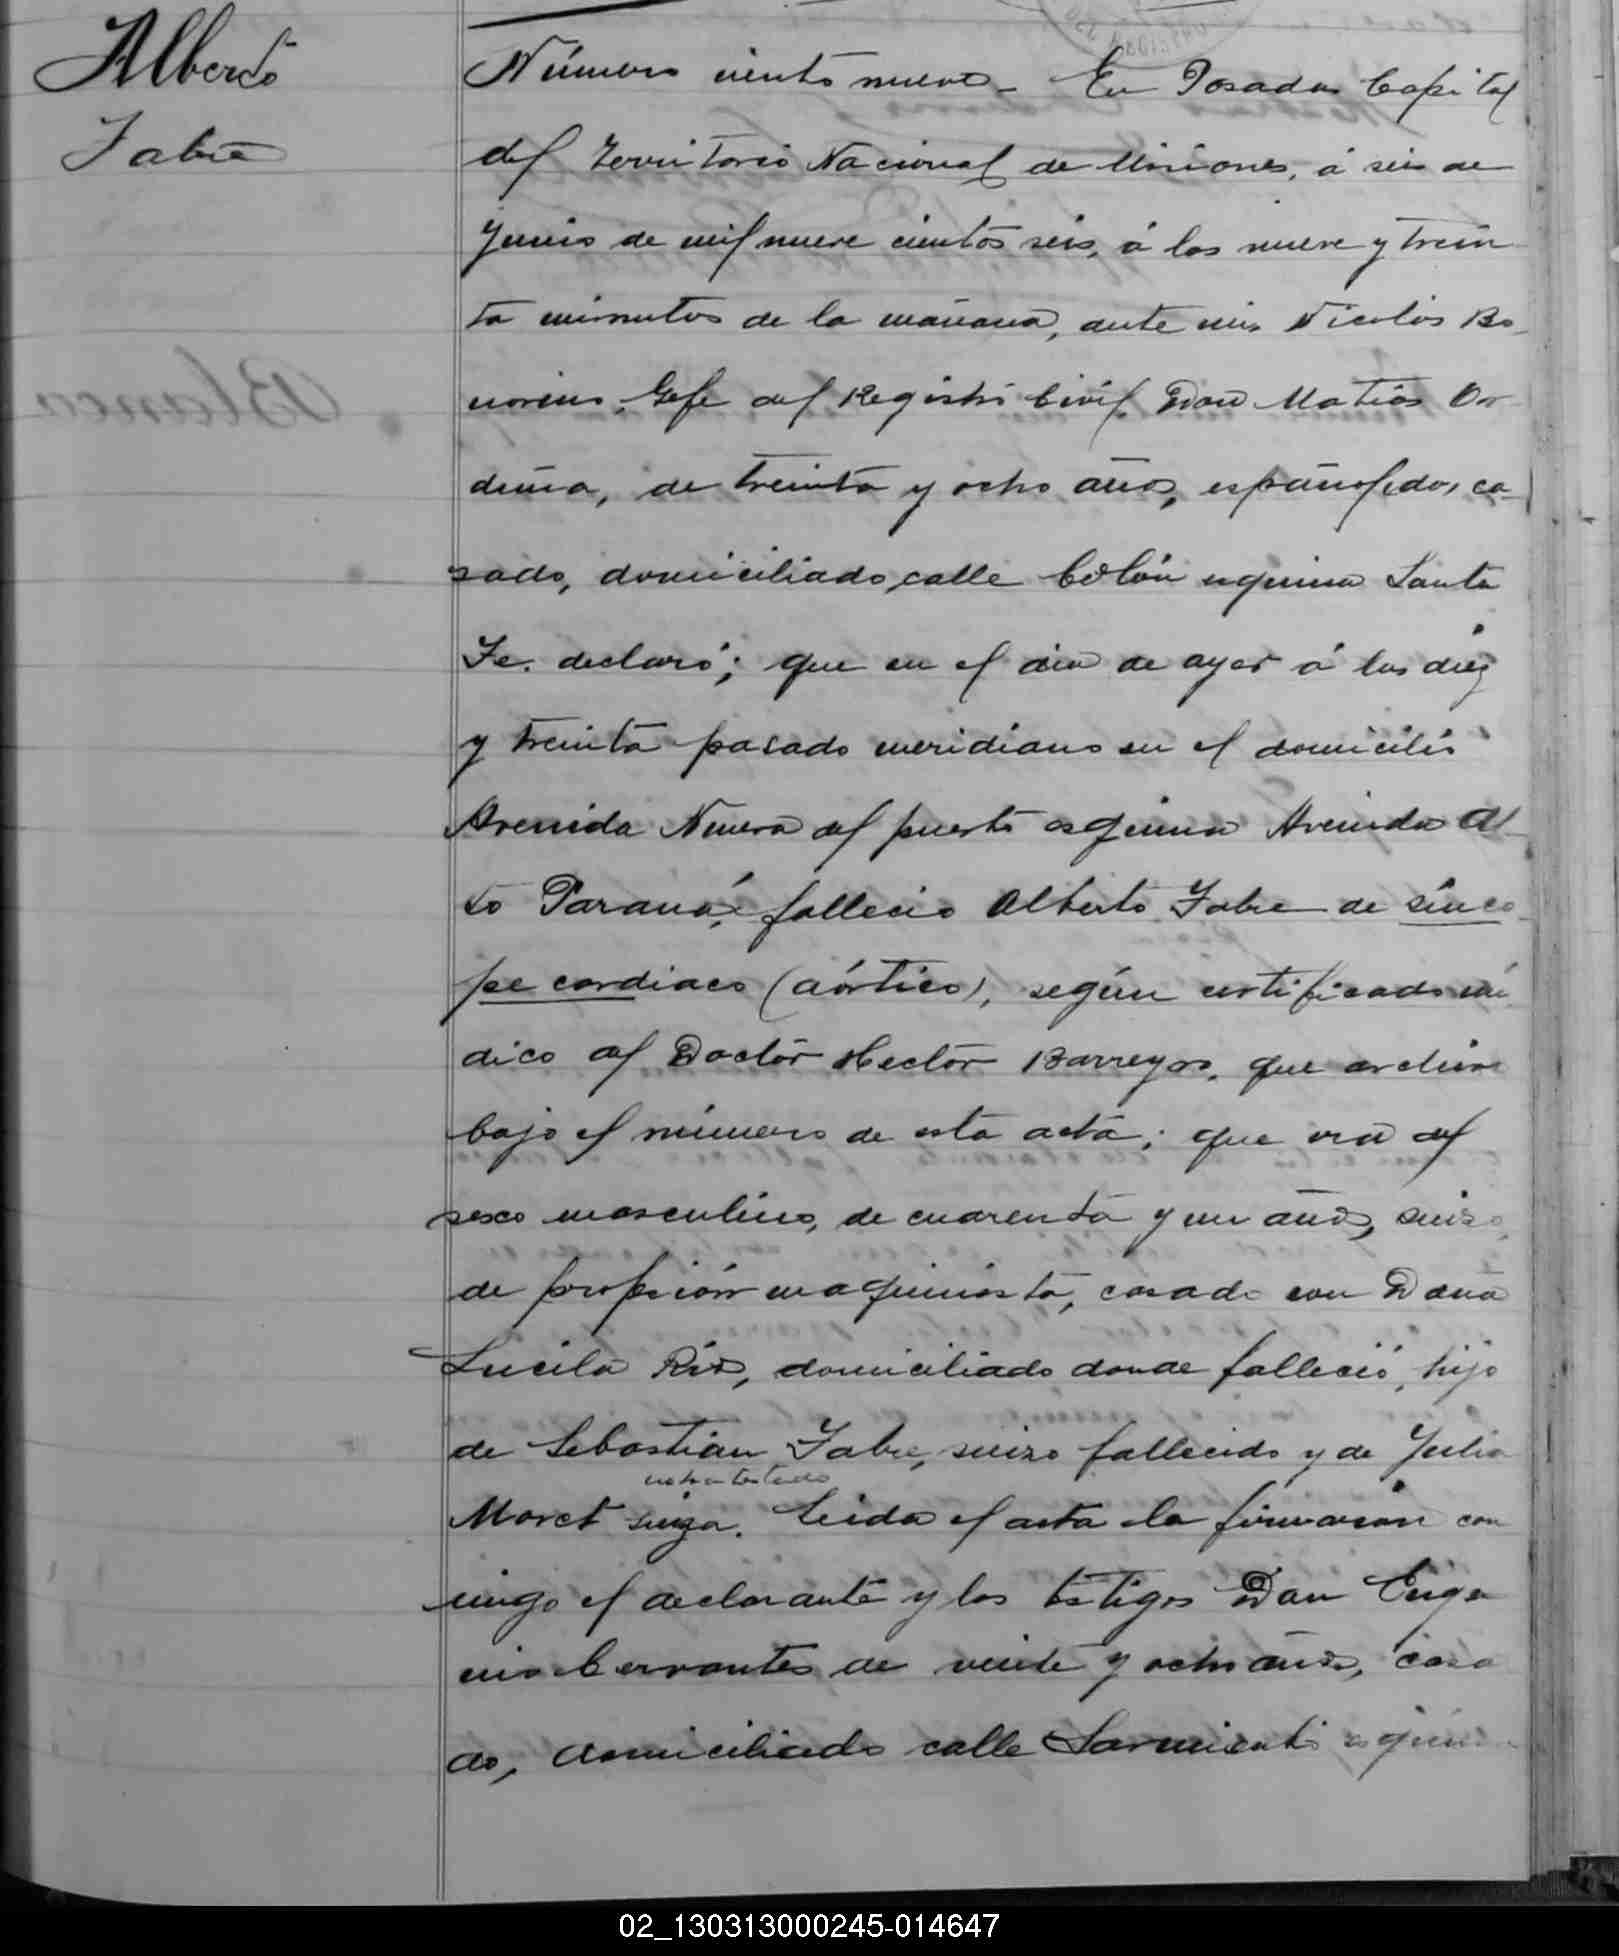 Alberto
Fabre
Número ciento nueve - En Posadas Capital
del Territorio Nacional de Misiones, á seis de
Junio de mil nueve cientos seis, á las nueve y trein
ta minutos de la mañana, ante mi, Nicolás Bo
norino, Gefe del Registro Civil, Don Matias Or
duña, de treinta y ocho años, español, ca
sado, domiciliado, calle Colón esquina Santa
Fe, declaró; que en el dia de ayer á las diez
y treinta pasado meridiano en el domicilio
Avenida Nueva del puerto esquina Avenida Al
to Paraná, fallecio Alberto Fabre de sinco
pe cardiaco (aórtico), según certificado mé
dico del Doctor Hector Barreyro, que archivo
bajo el número de esta acta; que era del
sexo masculino, de cuarenta y un años, suizo,
de profesión maquinista, casado con Doña
Lucila Rios, domiciliado donde falleció, hijo
de Sebastian Fabre, suizo fallecido y de Julia
Moret suiza. Leida el acta la firmaron con
migo el declarante y los testigos Don Euge
nio Cervantes de veinte y ocho años, casa
do, domiciliado calle Sarmiento esquina
02_130313000245-014647